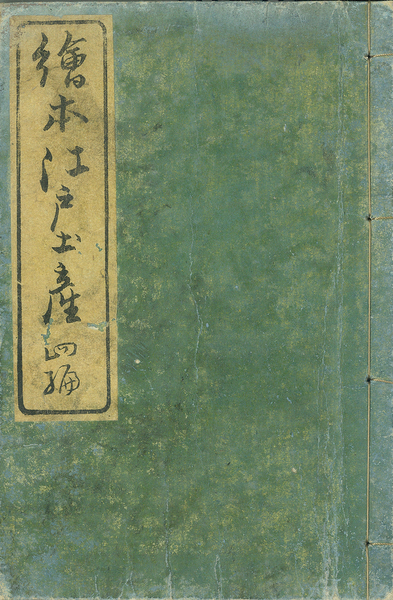 繪本江戸土產四編